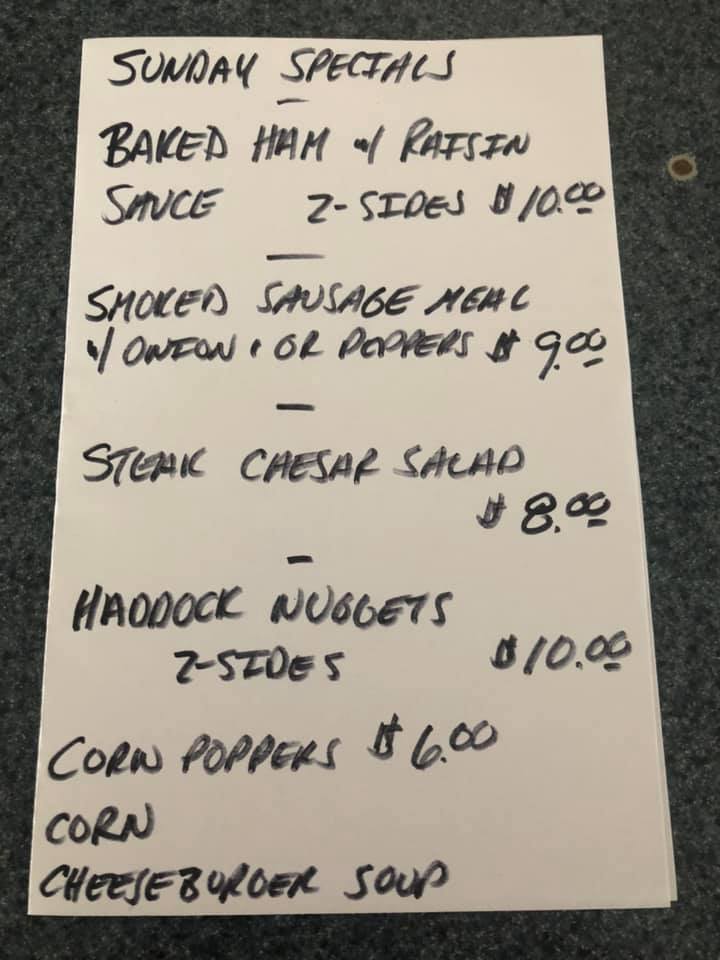 SUNDAY SPECIALS
BAKED HAM w/ RAISIN
SAUCE 2-SIDES $10.00
SMOKED SAUSAGE MEAL
w/ ONION · OR POPPERS $9.00
STEAK CAESAR SALAD
$8.00
HADDOCK NUGGETS
2-SIDES $10.00
CORN POPPERS $6.00
CORN
CHEESEBURGER SOUP